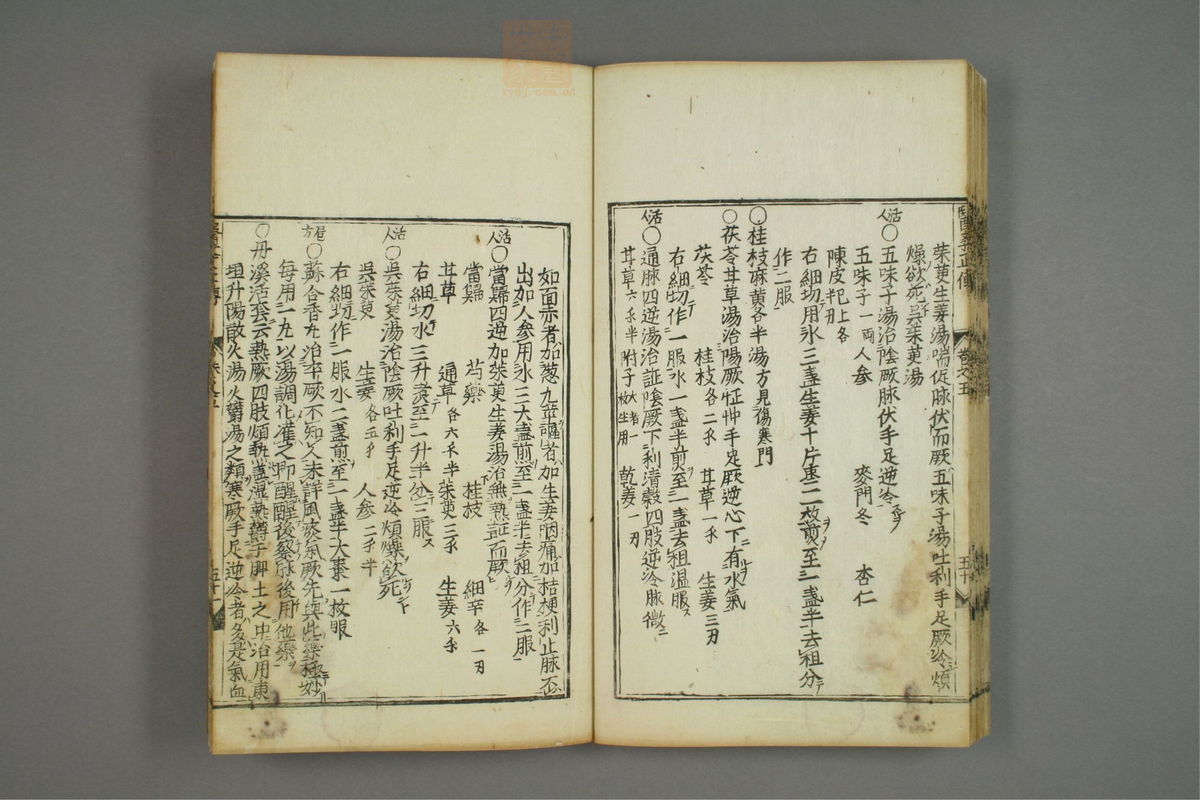 茱萸生姜湯喘促脉伏而厥五味子湯吐利手足厥冷煩
燥欲死呉茱萸湯
活人〇五味子湯治陰厥脉伏手足逆冷
五味子一兩 人参 麥門冬 杏仁
陳皮 上各
右細切用水三盞生姜十片枣二枚煎至一盞半去柤分
作二服
〇桂枝麻黄各半湯方見傷寒門
〇茯苓甘草湯治陽厥怔忡手足厥逆心下有水氣
茯苓 桂枝各二 甘草一 生姜三刃
右細切作一服水一盞半煎至一盞去柤温服
活人〇通脉四逆湯治証陰厥下利清穀四肢逆冷脉微
甘草六 半 附子大者一枚生用 乾姜一刃
醫學正傳 卷之五 五十
如面赤者加葱九莖 者加生姜咽痛加桔梗利止脉不
出加人参用水三大盞煎至一盞半去柤分作二服
活人〇當歸四逆加茱萸生姜湯治無熱証而厥
當歸 芍藥 桂枝 細辛各一刃
甘草 通草各六 半 茱萸三 生姜六
右細切水三升煮至一升半分三服
活人〇呉茱萸湯治陰厥吐利手足逆冷煩燥欲死
呉茱萸 生姜各五 人参二 半
右細切作一服水二盞煎至一盞半大枣一枚服
局方〇蘇合香丸治卒厥不知人未詳風痰氣厥先與此藥極妙
每用一丸以湯調化灌之即醒醒後察脉後用他藥
〇丹溪活套云熱厥四肢煩熱盖湿熱欝于脾土之中治用東
垣升陽散火湯火欝湯之類寒厥手足逆冷者多是氣血